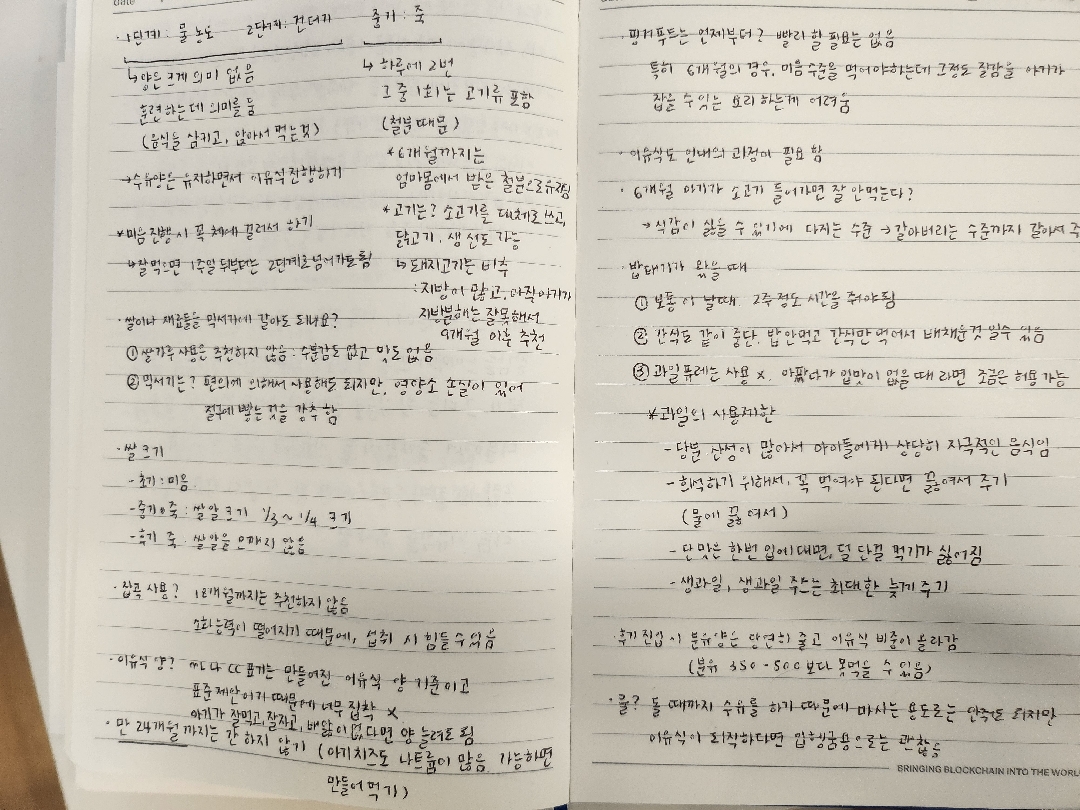 Date
· 1단계: 물 농도 2단계: 건더기
↳ 양은 크게 의미 없음
훈련하는데 의미를 둠
(음식을 삼키고, 앉아서 먹는것)
→ 수유양은 유지하면서 이유식 진행하기
* 미음 진행 시 꼭 체에 걸러서 하기
↳ 잘먹으면 1주일 뒤부터는 2단계로 넘어가도 됨
중기 : 죽
↳ 하루에 2번
그 중 1회는 고기류 포함
(철분 때문)
* 6개월까지는
엄마몸에서 받은 철분으로 유지됨
* 고기는? 소고기를 대체로 쓰고,
닭고기, 생선도 가능
↳ 돼지고기는 비추
: 지방이 많고, 아직 아기가
지방분해는 잘못해서
9개월 이후 추천
· 쌀이나 재료들을 믹서기에 갈아도 되나요?
① 쌀가루 사용은 추천하지 않음 : 수분감도 없고 맛도 없음
② 믹서기는? 편의에 의해서 사용해도 되지만, 영양소 손실이 있어
절구에 빻는 것을 강추함
· 쌀 크기
- 초기 : 미음
- 중기 죽 : 쌀알 크기 1/3 ~ 1/4 크기
- 후기 죽 : 쌀알을 으깨지 않음
· 잡곡 사용? 18개월까지는 추천하지 않음
소화능력이 떨어지기 때문에, 섭취 시 힘들 수 있음
· 이유식 양? ml 나 cc 표기는 만들어진 이유식 양 기준이고
표준 제안이기 때문에 너무 집착 X
아기가 잘먹고, 잘자고, 배앓이 없다면 양 늘려도 됨
· 만 24개월까지는 간 하지 않기 (아기치즈도 나트륨이 많음. 가능하면
만들어 먹기)
· 핑거푸드는 언제부터? 빨리 할 필요는 없음
특히 6개월의 경우, 미음 수준을 먹어야하는데 그정도 질감을 아기가
집을 수 있는 요리 하는게 어려움
· 이유식도 인내의 과정이 필요 함
· 6개월 아기가 소고기 들어가면 잘 안먹는다?
→ 식감이 싫을 수 있기에 다지는 수준 → 갈아버리는 수준까지 갈아서 주
· 밥태기가 왔을 때
① 보통 이 날때 2주 정도 시간을 줘야 됨
② 간식도 같이 중단. 밥 안먹고 간식만 먹어서 배채운것 일수 있음
③ 과일퓨레는 사용 X. 아팠다가 입맛이 없을 때 라면 조금은 허용 가능
* 과일의 사용제한
- 당분 산성이 많아서 아이들에게 상당히 자극적인 음식임
- 희석하기 위해서, 꼭 먹여야 된다면 끓여서 주기
(물에 끓여서)
- 단맛은 한번 입에 대면, 덜 단걸 먹기가 싫어짐
- 생과일, 생과일 쥬스는 최대한 늦게 주기
· 후기 진입 시 분유양은 당연히 줄고 이유식 비중이 올라감
(분유 350 - 500 보다 못먹을 수 있음)
· 물? 돌 때까지 수유를 하기 때문에 마시는 용도로는 안줘도 되지만
이유식이 퍽퍽하다면 입헹굼용으로는 괜찮음
BRINGING BLOCKCHAIN INTO THE WORL